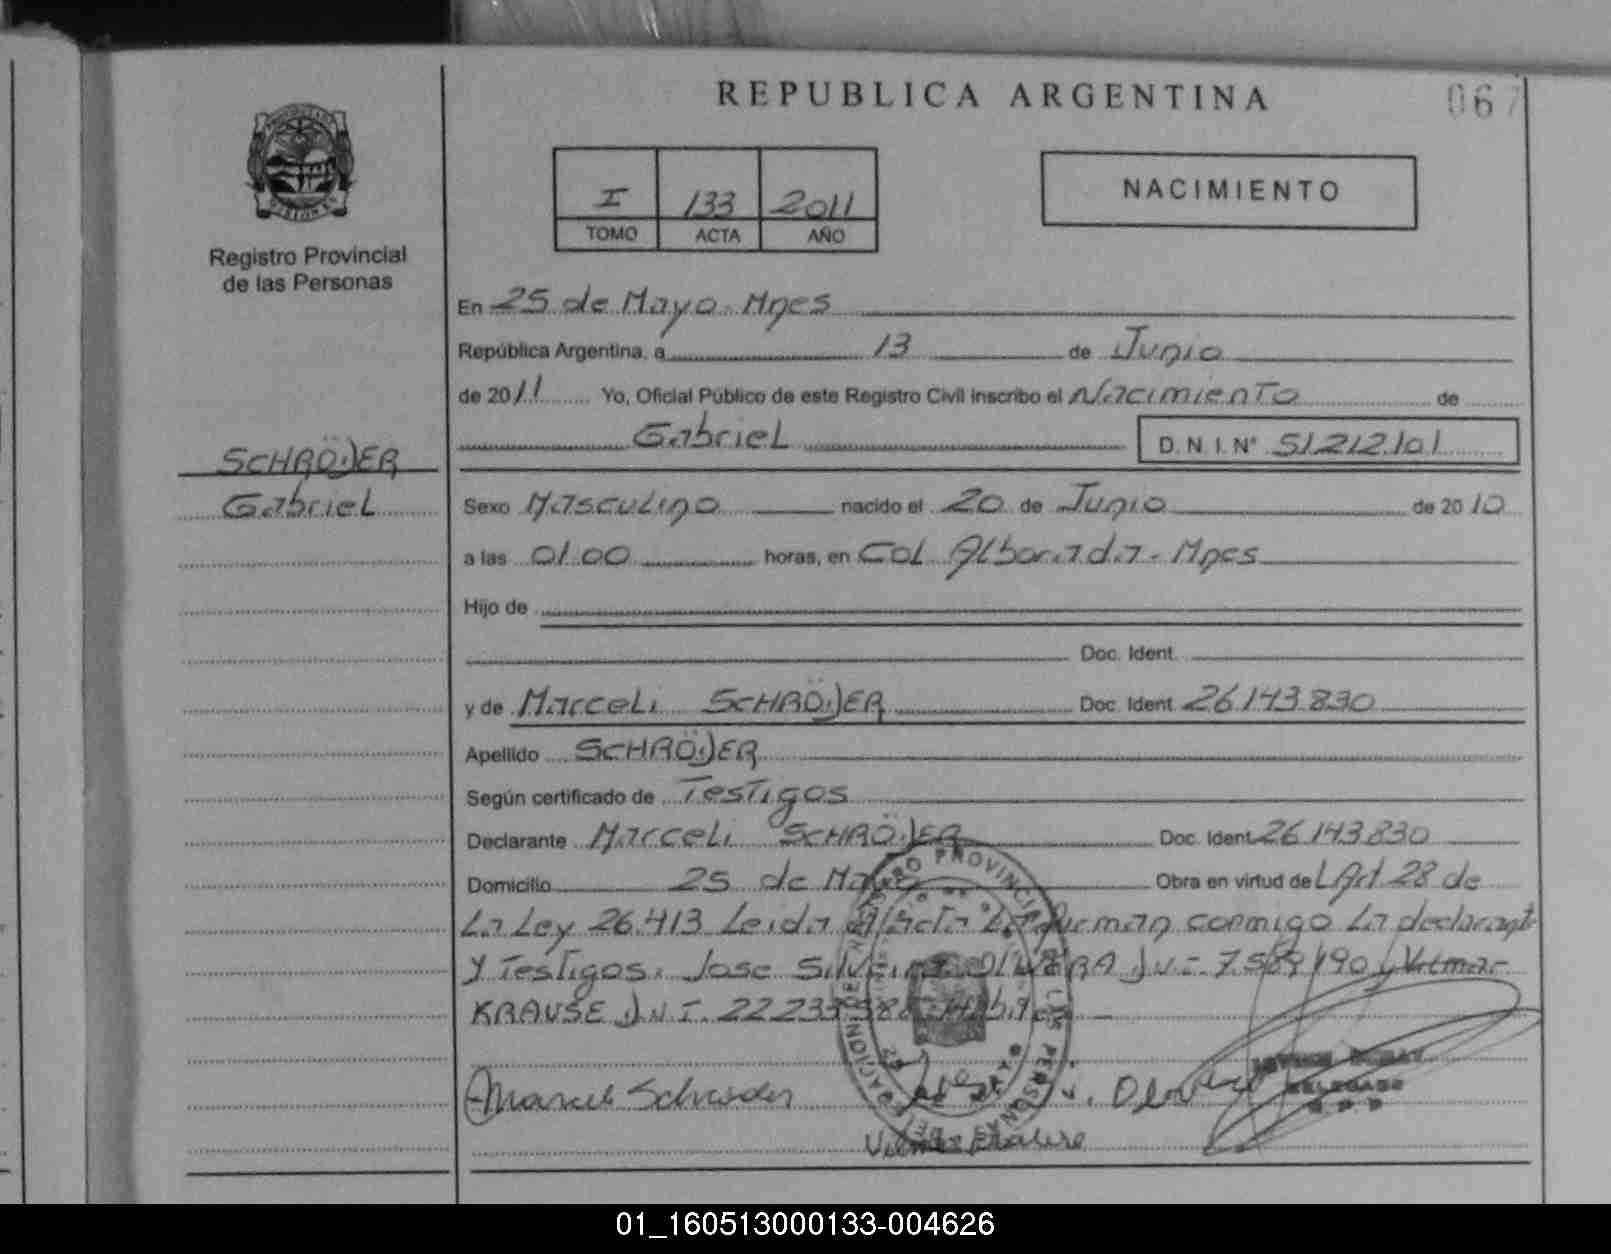 REPUBLICA ARGENTINA
067
I 133 2011
TOMO ACTA AÑO
NACIMIENTO
Registro Provincial
de las Personas
SCHRÖDER
Gabriel
En 25 de Mayo Mnes
República Argentina, a 13 de Junio
de 2011 Yo, Oficial Público de este Registro Civil inscribo el Nacimiento de
Gabriel D. N. I. N° 51.212.101
Sexo Masculino nacido el 20 de Junio de 2010
a las 01.00 horas, en Col Alborada - Mnes
Hijo de
Doc. Ident.
y de Marceli SCHRÖDER Doc. Ident 26.143.830
Apellido SCHRÖDER
Según certificado de Testigos
Declarante Marceli SCHRÖDER Doc. Ident 26.143.830
Domicilio 25 de Mayo Obra en virtud del Art 28 de
La Ley 26.413 Leida el Acta La firman conmigo La declarante
y Testigos. Jose OLIVERA D.N.I. 7.589.190 y Vilmar
KRAUSE D.N.I.
Marceli Schroder
Krause
DELEGADO
01_160513000133-004626